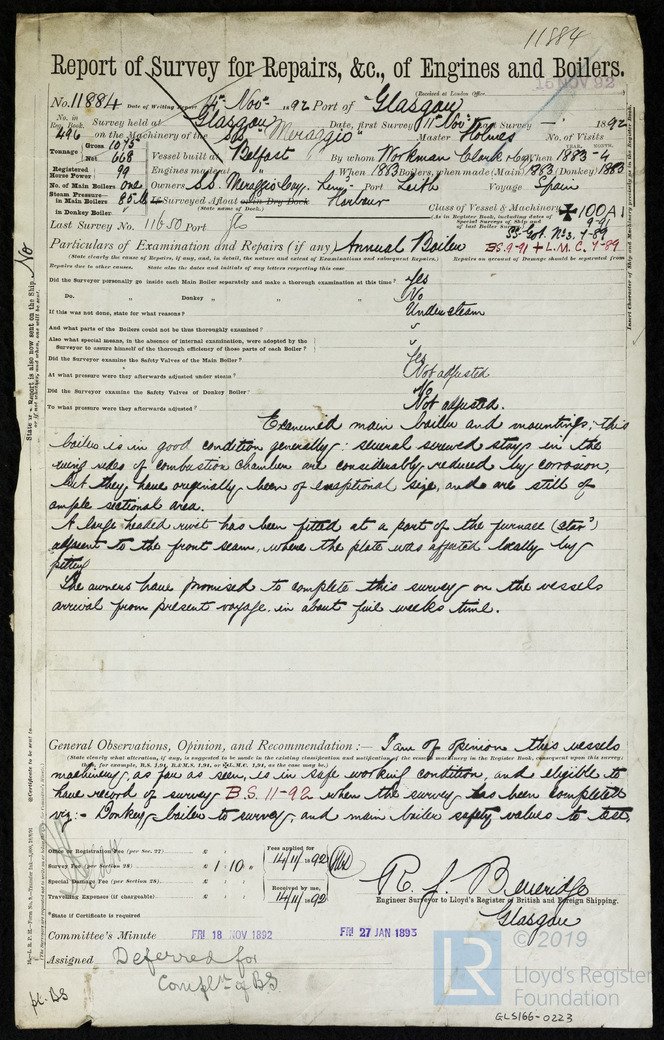 11884
Report of Survey for Repairs, &c., of Engines and Boilers.
(Received at London Office
15 NOV 92
No. 11884 Date of Writing Report 14th Novr 1892 Port of Glasgow
No. in Reg. Book. 496
Survey held at Glasgow Date, first Survey 11th Novr Last Survey — 1892
on the Machinery of the SS "Meraggio" Master Holmes No. of Visits
Tonnage Gross 1075 Net 668
Vessel built at Belfast By whom Workman Clark & Co When 1883-4 YEAR. MONTH.
Registered Horse Power 99
Engines made " When 1883 Boilers, when made (Main) 1883 (Donkey) 1883
No. of Main Boilers One
Owners S.S. Meraggio Coy. Port Leith Voyage Spain
Steam Pressure in Main Boilers 85 lb
If Surveyed Afloat or in Dry Dock Harbour
(State name of Dock.)
in Donkey Boiler
Class of Vessel & Machinery 100A1
(As in Register Book, including dates of Special Surveys of Ship and of last Boiler Survey
9-91
Last Survey No. 11650 Port Gls
SS. Got. No. 3. 7-89
Particulars of Examination and Repairs (if any) Annual Boiler BS. 9-91 + L.M.C. 7-89
(State clearly the Cause of Repairs, if any, and, in detail, the nature and extent of Examinations and subsequent Repairs.) Repairs on account of Damage should be separated from
Repairs due to other causes. State also the dates and initials of any letters respecting this case
Did the Surveyor personally go inside each Main Boiler separately and make a thorough examination at this time? Yes
Do. " Donkey " " " No
If this was not done, state for what reasons? Under steam
And what parts of the Boilers could not be thoroughly examined? "
Also what special means, in the absence of internal examination, were adopted by the
Surveyor to assure himself of the thorough efficiency of those parts of each Boiler? "
Did the Surveyor examine the Safety Valves of the Main Boiler? Yes
At what pressure were they afterwards adjusted under steam? Not adjusted
Did the Surveyor examine the Safety Valves of Donkey Boiler? No
To what pressure were they afterwards adjusted? Not adjusted.
Examined main boiler and mountings; this
boiler is in good condition generally: several screwed stays in the
wing sides of combustion chamber are considerably reduced by corrosion,
but they have originally been of exceptional size, and are still of
ample sectional area.
A large headed rivet has been fitted at a part of the furnace (starb)
adjacent to the front seam, where the plate was affected locally by
pitting
The owners have promised to complete this survey on the vessels
arrival from present voyage, in about five weeks time.
General Observations, Opinion, and Recommendation:— I am of opinion this vessels
(State clearly what alteration, if any, is suggested to be made in the existing classification and notification of the vessel's machinery in the Register Book, consequent upon this survey;
thus, for example, B.S. 2,91, B.&M.S. 1,91, or L.M.C. 1,91, as the case may be.)
machinery, as far as seen, is in safe working condition, and eligible to
have record of survey B.S. 11-92 when the survey has been completed
viz:- Donkey boiler to survey, and main boiler safety valves to test.
Office or Registration Fee (per Sec. 27) ... £ : :
Survey Fee (per Section 28) ... £ 1 : 10 "
Special Damage Fee (per Section 28) ... £ : :
Travelling Expenses (if chargeable) £ : :
Fees applied for 14/11/1892
Received by me, 14/11/1892
*State if Certificate is required
R. J. Beveridge
Engineer Surveyor to Lloyd's Register of British and Foreign Shipping.
Glasgow
Committee's Minute FRI 18 NOV 1892 FRI 27 JAN 1893
Assigned Deferred for
Compltn of B.S.
© 2019
LR
Lloyd's Register
Foundation
GLS166-0223